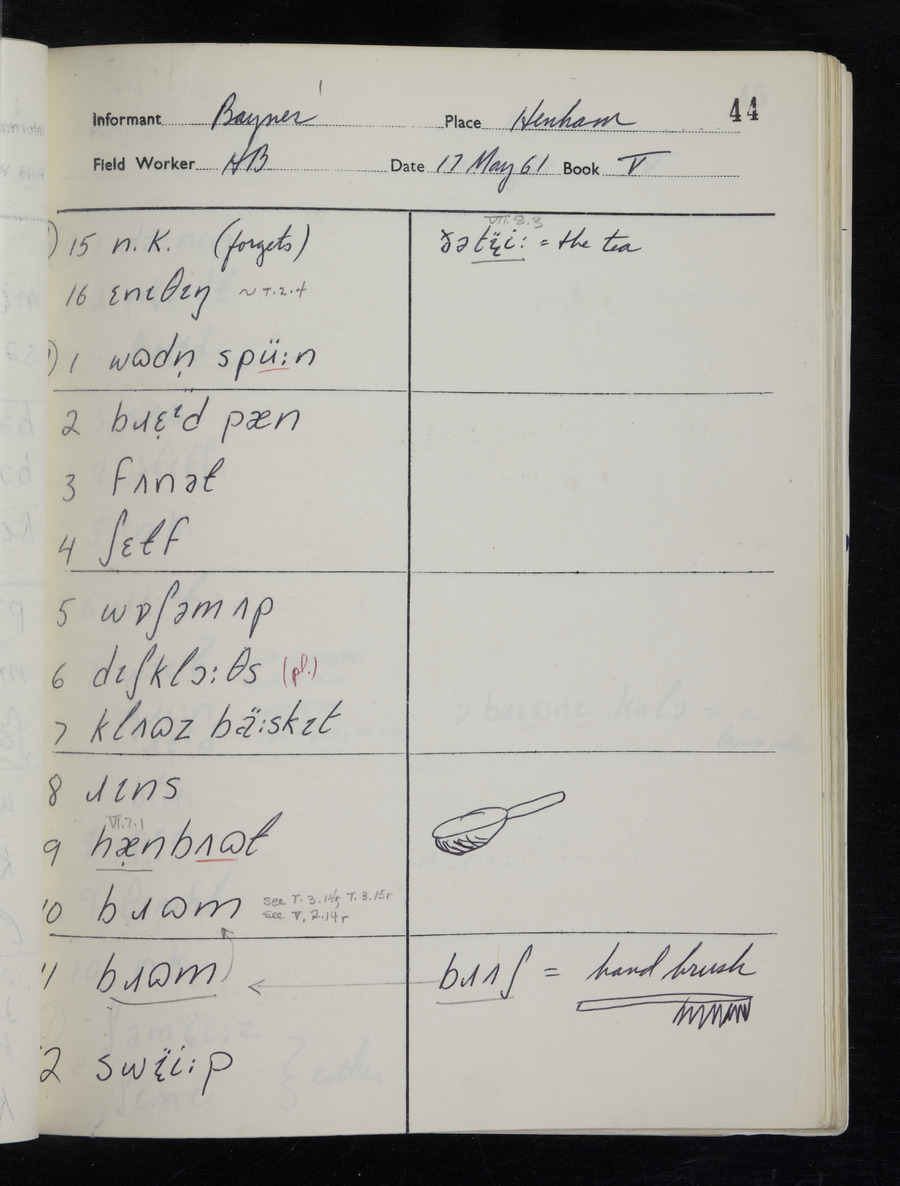 44
Informant Baynes Place Henham
Field Worker HB Date 17 May 61 Book V
15 n.K. (forgets)
VII.8.3
ɣətɪ̈i: = the tea
16 ɛnɪθɪŋ ~ T.2.4
1 wɷdn̩ spü:n
2 bɹɛᶦd pæn
3 fʌnəɫ
4 ʃɛɫf
5 wɒʃəm ʌp
6 dɪʃklɔ:θs (pl.)
7 klʌɷz bä:skɪt
8 ɹɪns
VI.7.1
9 hænbʌɷɫ
10 bɹɷm see T.3.14r, T.3.15r
see V, 2.14r
11 bɹɷm
bɹʌʃ = hand brush
12 swɪ̈i:p